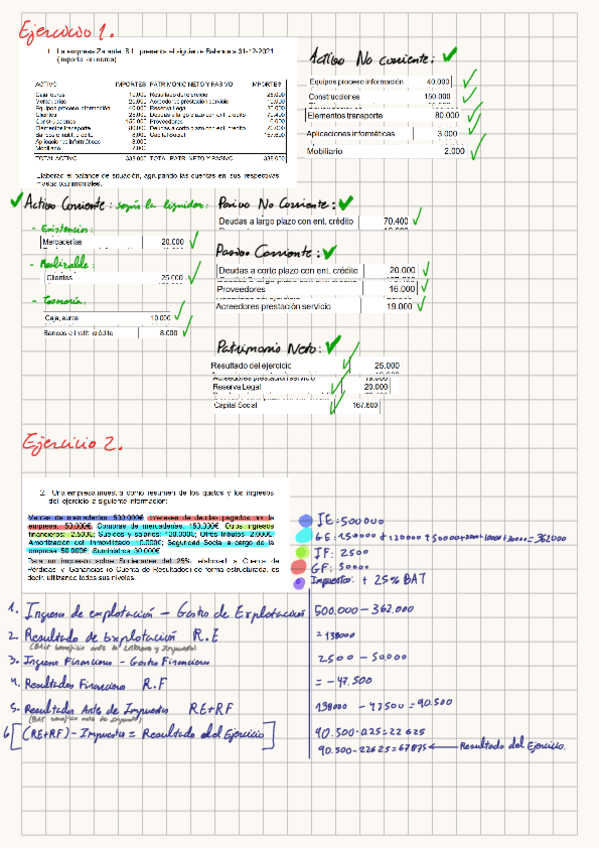 Ejercicio 1.
1. La empresa Zeranda, S.L. presenta el siguiente Balance a 31-12-2021
(importe en euros)
ACTIVO IMPORTES PATRIMONIO NETO Y PASIVO IMPORTES
Caja, euros 10.000 Resultado del ejercicio 25.000
Mercaderías 20.000 Acreedores prestación servicio 19.000
Equipos proceso información 40.000 Reserva Legal 20.000
Clientes 25.000 Deudas a largo plazo con ent. crédito 70.400
Construcciones 150.000 Proveedores 16.000
Elementos transporte 80.000 Deudas a corto plazo con ent. crédito 20.000
Bancos e instit. crédito 8.000 Capital Social 167.600
Aplicaciones informáticas 3.000
Mobiliario 2.000
TOTAL ACTIVO 338.000 TOTAL PATR. NETO Y PASIVO 338.000
Elaborar el balance de situación, agrupando las cuentas en sus respectivas
masas patrimoniales.
Activo No corriente:
Equipos proceso información 40.000
Construcciones 150.000
Elementos transporte 80.000
Aplicaciones informáticas 3.000
Mobiliario 2.000
Activo Corriente: según la liquidez:
- Existencias:
Mercaderías 20.000
- Realizable:
Clientes 25.000
- Tesorería:
Caja, euros 10.000
Bancos e instit. crédito 8.000
Pasivo No Corriente:
Deudas a largo plazo con ent. crédito 70.400
Pasivo Corriente:
Deudas a corto plazo con ent. crédito 20.000
Proveedores 16.000
Acreedores prestación servicio 19.000
Patrimonio Neto:
Resultado del ejercicio 25.000
Reserva Legal 20.000
Capital Social 167.600
Ejercicio 2.
2. Una empresa muestra como resumen de los gastos y los ingresos
del ejercicio la siguiente información:
Ventas de mercaderías: 500.000€ Intereses de deudas pagados por la
empresa: 50.000€; Compras de mercaderías: 150.000€; Otros ingresos
financieros: 2.500€; Sueldos y salarios: 120.000€; Otros tributos: 2.000€;
Amortización del Inmovilizado: 10.000€; Seguridad Social a cargo de la
empresa: 50.000€; Suministros: 30.000€
Para un impuesto sobre Sociedades del 25%, elaborar la Cuenta de
Pérdidas y Ganancias (o Cuenta de Resultados) de forma estructurada, es
decir, utilizando todos sus niveles.
IE=500000
GE: 150000+120000+50000+2000+10000+30000=362000
IF: 2500
GF: 50000
Impuestos: + 25% BAT
1. Ingresos de explotación - Gastos de Explotación 500.000 - 362.000
2. Resultado de Explotación R.E = 138000
(BAIT beneficio ante de intereses y Impuestos)
3. Ingresos Financieros - Gastos Financieros 2500 - 50000
4. Resultados Financiero R.F = -47.500
5. Resultados Ante de Impuestos RE+RF 138000 - 47500 = 90.500
(BAT beneficio ante de impuesto)
6 [(RE+RF) - Impuestos = Resultado del Ejercicio] 90.500·0,25=22625
90.500-22625=67875 ← Resultado del Ejercicio.